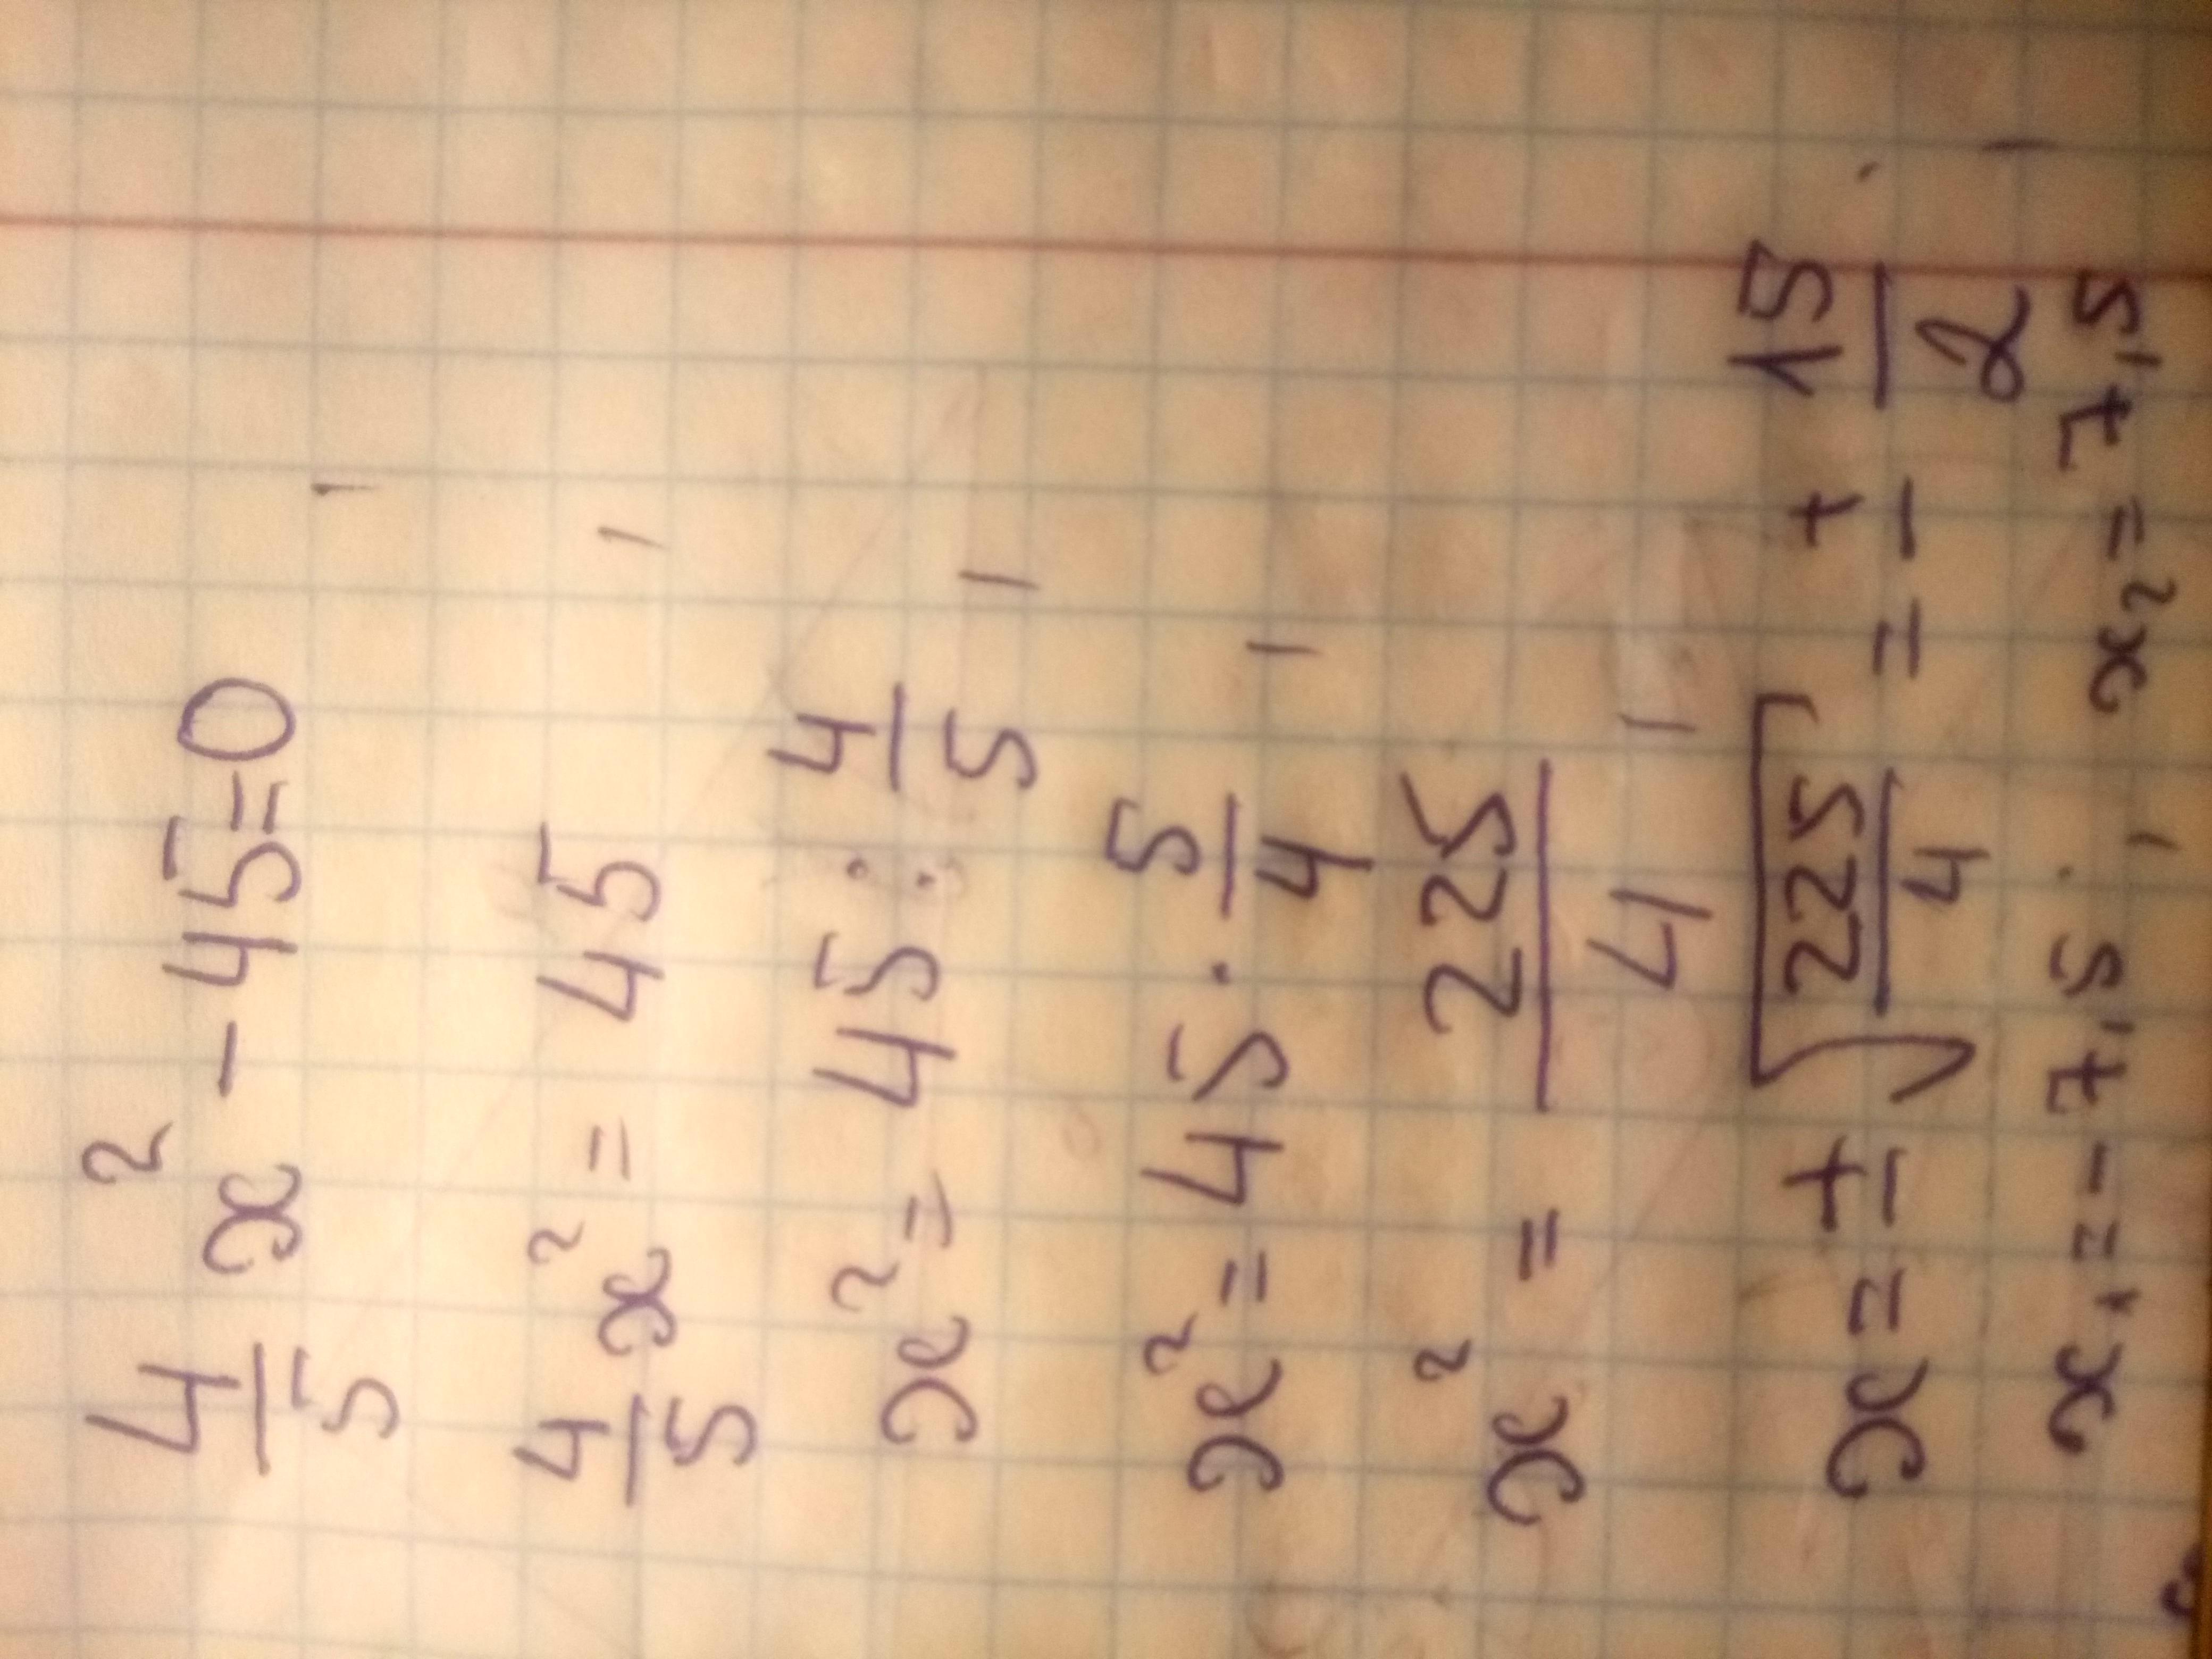 4/5 x² - 45=0,
4/5 x² = 45,
x² = 45 : 4/5,
x² = 45 · 5/4,
x² = 225/4,
x = ± √(225/4) = ± 15/2;
x₁ = - 7,5; x₂ = 7,5